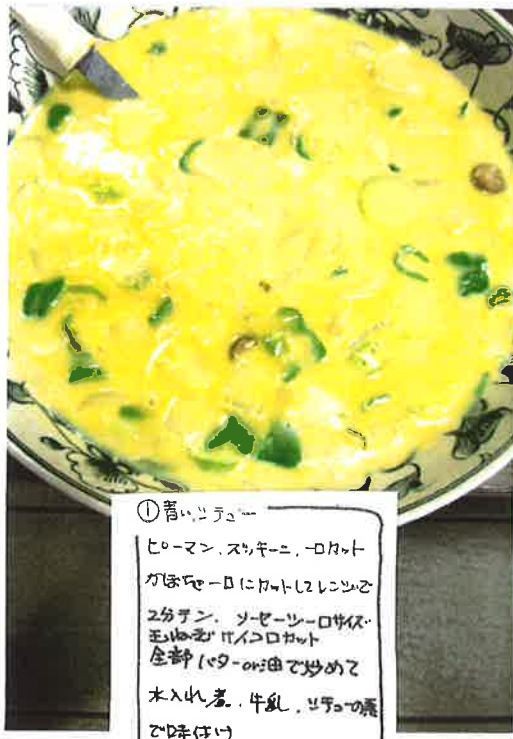 ①青いシチュー
ピーマン、ズッキーニ、一口カット
かぼちゃ一口にカットしてレンジで
2分テン、ソーセージ一口サイズ
玉ねぎ サイコロカット
全部バターor油で炒めて
水入れ煮、牛乳、シチューの素
で味付け